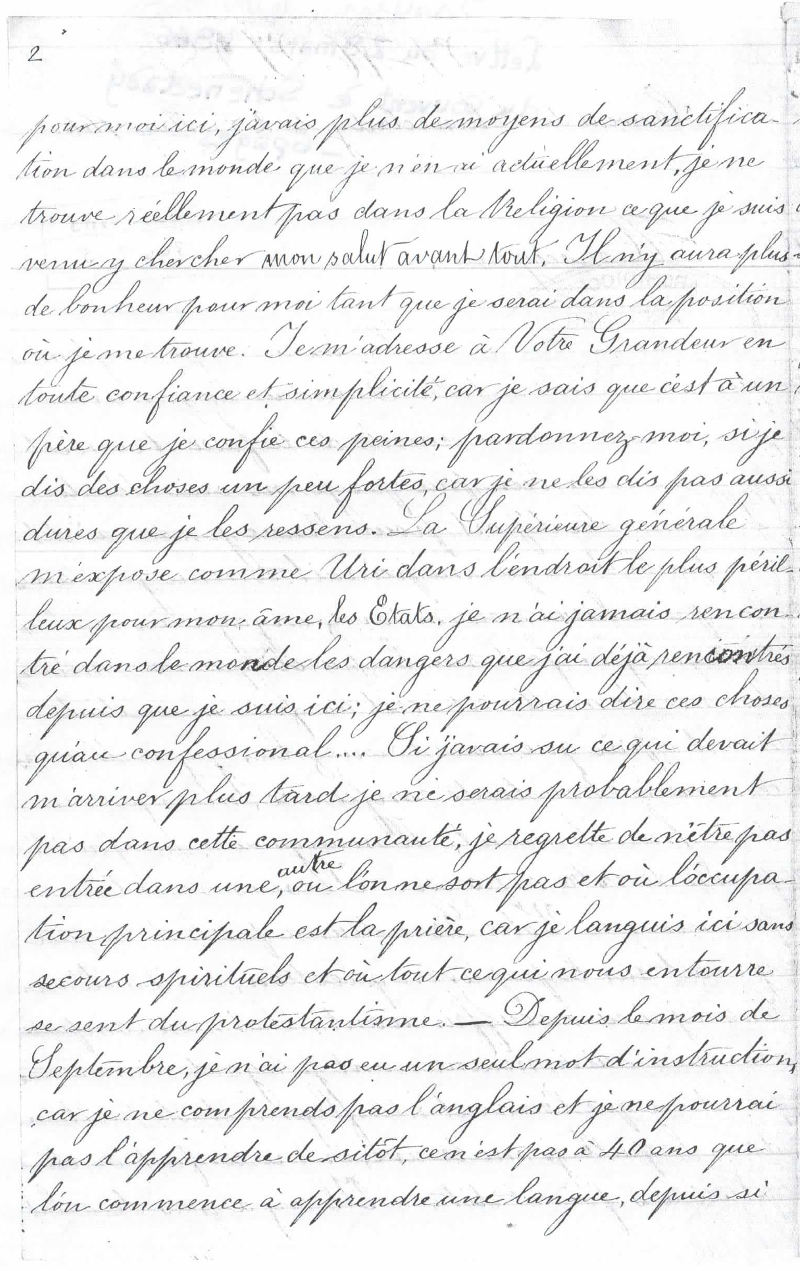 2
pour moi ici, j'avais plus de moyens de sanctifica-
tion dans le monde que je n'en ai actuellement, je ne
trouve réellement pas dans la Religion ce que je suis
venu y chercher mon salut avant tout. Il n'y aura plus
de bonheur pour moi tant que je serai dans la position
où je me trouve. Je m'adresse à Votre Grandeur en
toute confiance et simplicité, car je sais que c'est à un
père que je confie ces peines; pardonnez-moi, si je
dis des choses un peu fortes, car je ne les dis pas aussi
dures que je les ressens. La Supérieure générale
m'expose comme Uri dans l'endroit le plus péril-
leux pour mon âme, les Etats. je n'ai jamais rencon-
tré dans le monde les dangers que j'ai déjà rencontrés
depuis que je suis ici; je ne pourrais dire ces choses
qu'au confessional.... Si j'avais su ce qui devait
m'arriver plus tard je ne serais probablement
pas dans cette communauté, je regrette de n'être pas
autre
entrée dans une, où l'on ne sort pas et où l'occupa-
tion principale est la prière, car je languis ici sans
secours spirituels et où tout ce qui nous entourre
se sent du protestantisme. — Depuis le mois de
Septembre, je n'ai pas eu un seul mot d'instruction,
car je ne comprends pas l'anglais et je ne pourrai
pas l'apprendre de sitôt, ce n'est pas à 40 ans que
l'on commence à apprendre une langue, depuis si